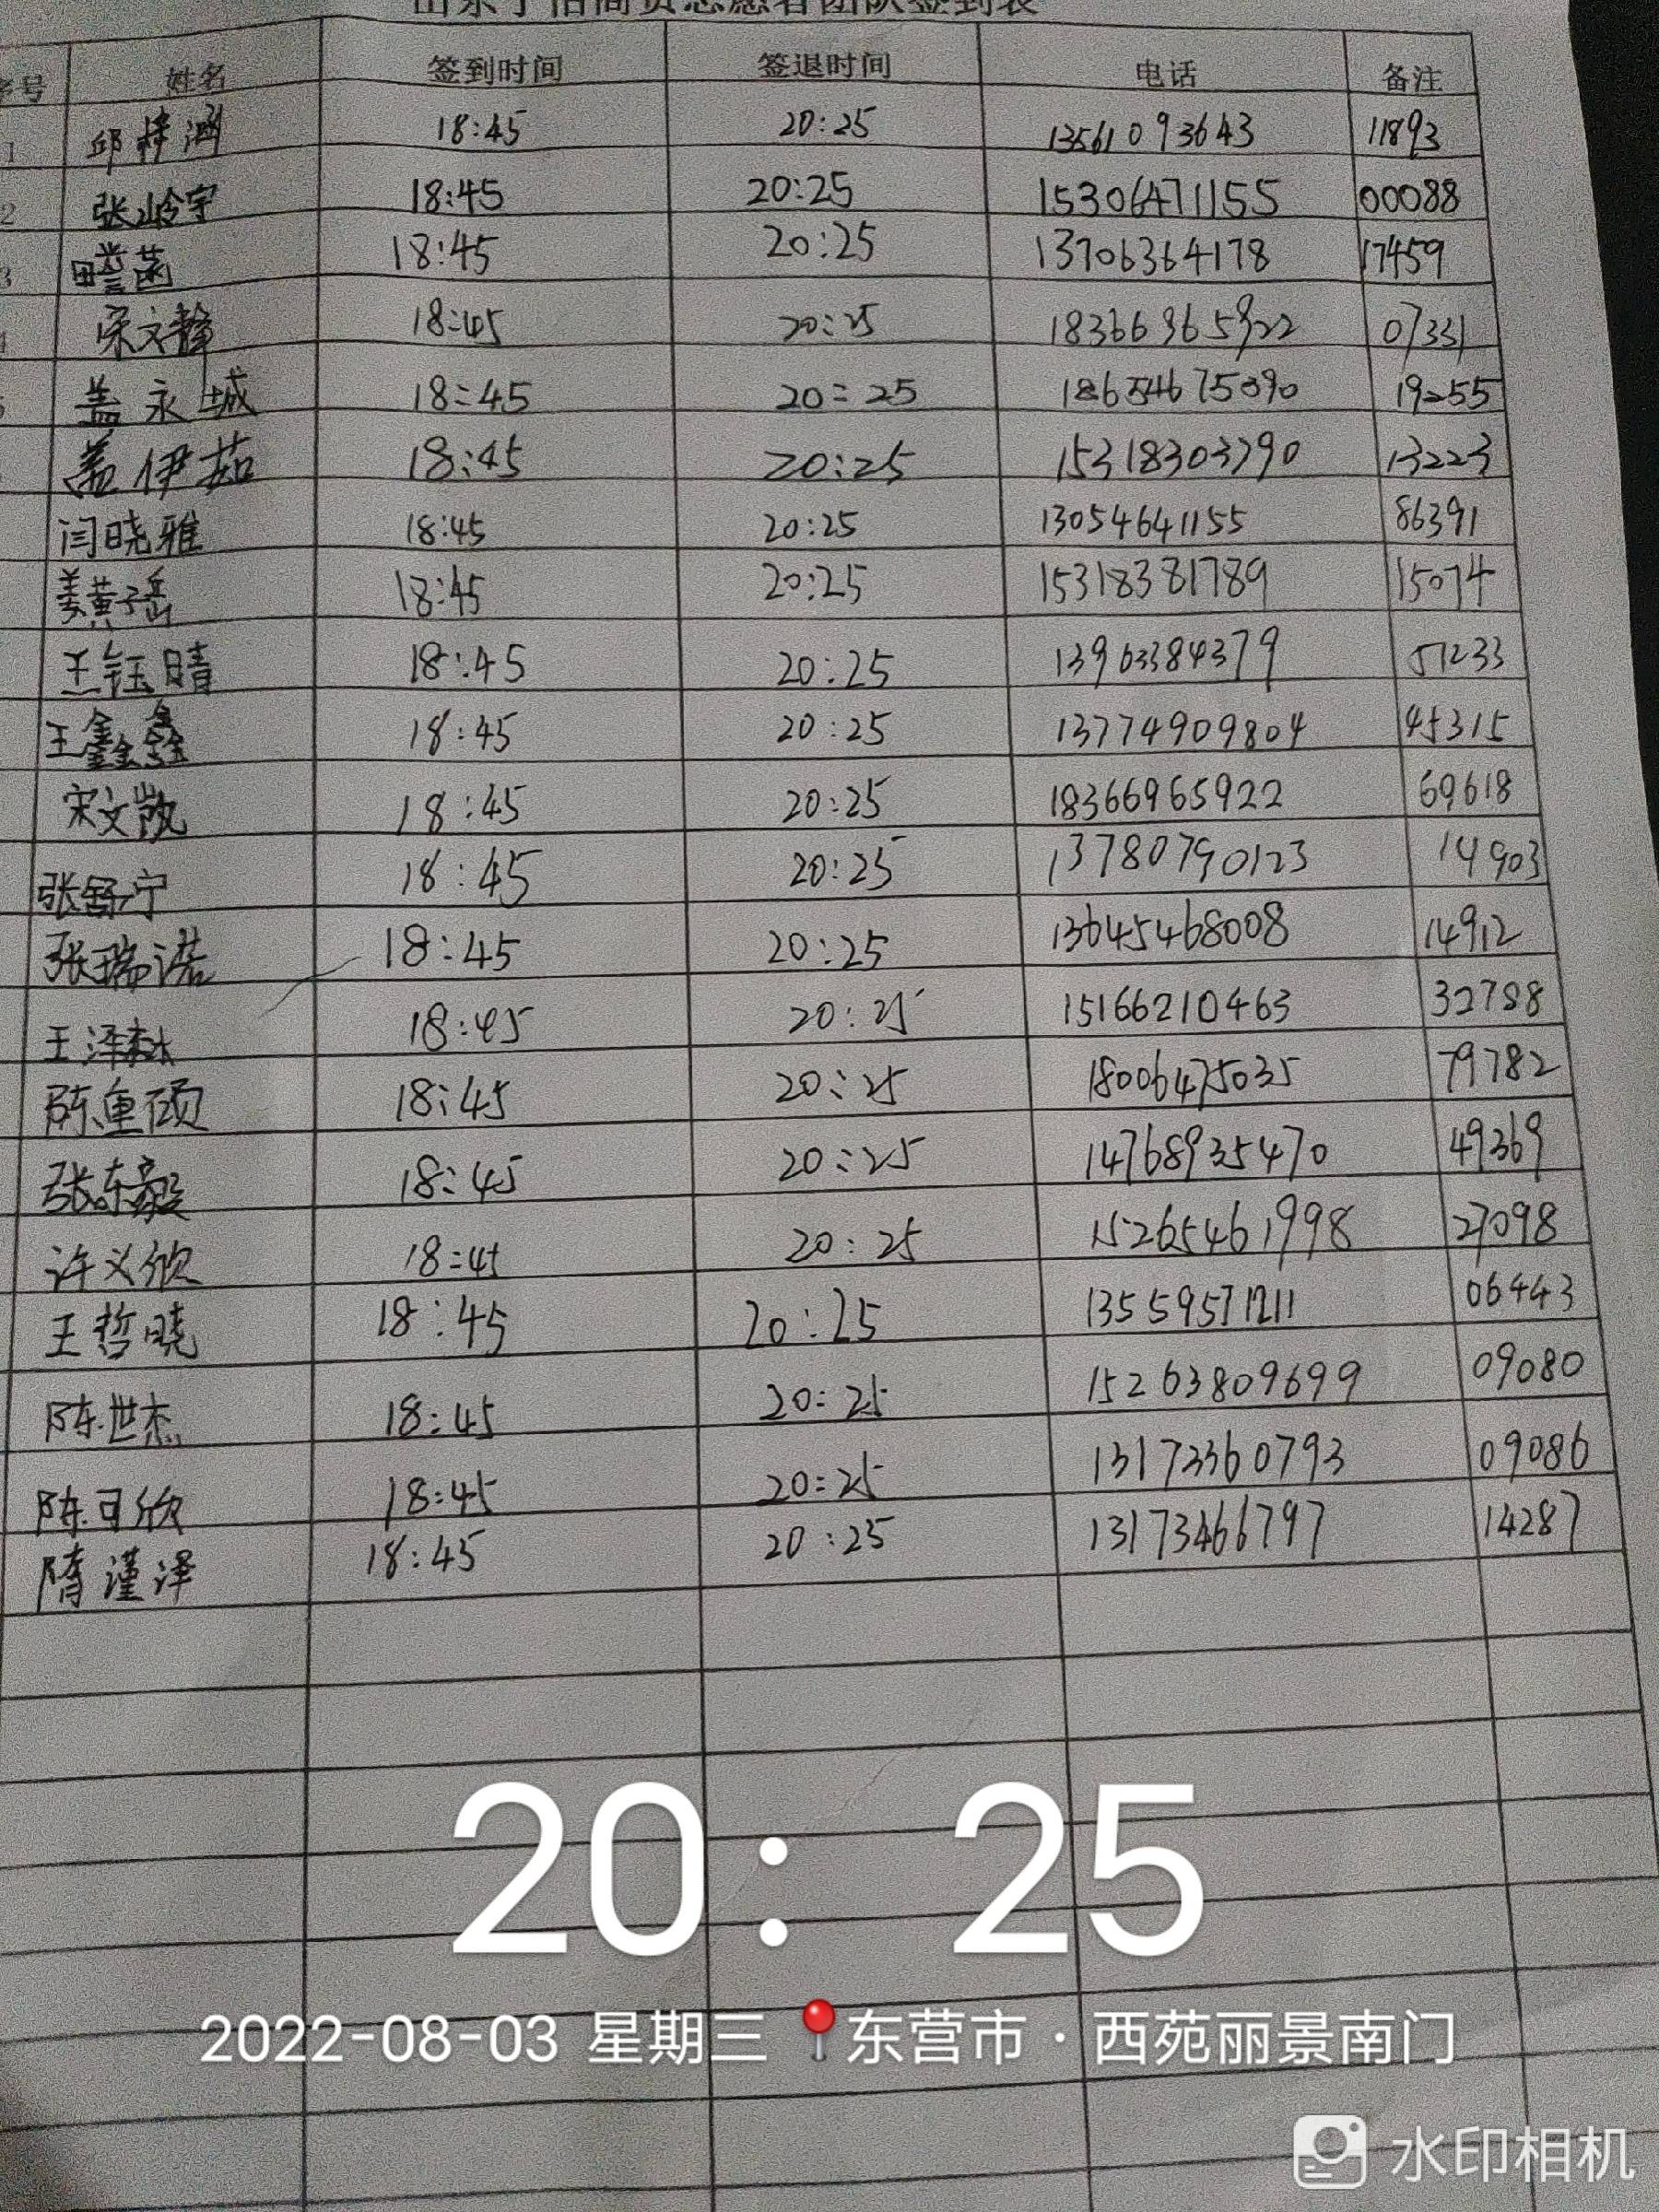 志愿者团队签到表
序号 姓名 签到时间 签退时间 电话 备注
1 邱梓涵 18:45 20:25 13561093643 11893
2 张岭宇 18:45 20:25 15306471155 00088
3 田誉菡 18:45 20:25 13706364178 17459
4 宋文静 18:45 20:25 18366965922 07331
5 盖永城 18:45 20:25 18654675090 19255
盖伊茹 18:45 20:25 15318303790 13223
闫晓雅 18:45 20:25 13054641155 86391
姜黄子岳 18:45 20:25 15318381789 15074
王钰晴 18:45 20:25 13963384379 51233
王鑫鑫 18:45 20:25 13774909804 45315
宋文凯 18:45 20:25 18366965922 69618
张舒宁 18:45 20:25 13780790123 14903
张瑞诺 18:45 20:25 13645468008 14912
王泽森 18:45 20:25 15166210463 32788
陈重硕 18:45 20:25 18006475035 79782
张东毅 18:45 20:25 14768935470 49369
许义欣 18:45 20:25 15265461998 27098
王哲晓 18:45 20:25 13559571211 06443
陈世杰 18:45 20:25 15263809699 09080
陈可欣 18:45 20:25 13173360793 09086
隋谨泽 18:45 20:25 13173466797 14287
20:25
2022-08-03 星期三 东营市·西苑丽景南门
水印相机